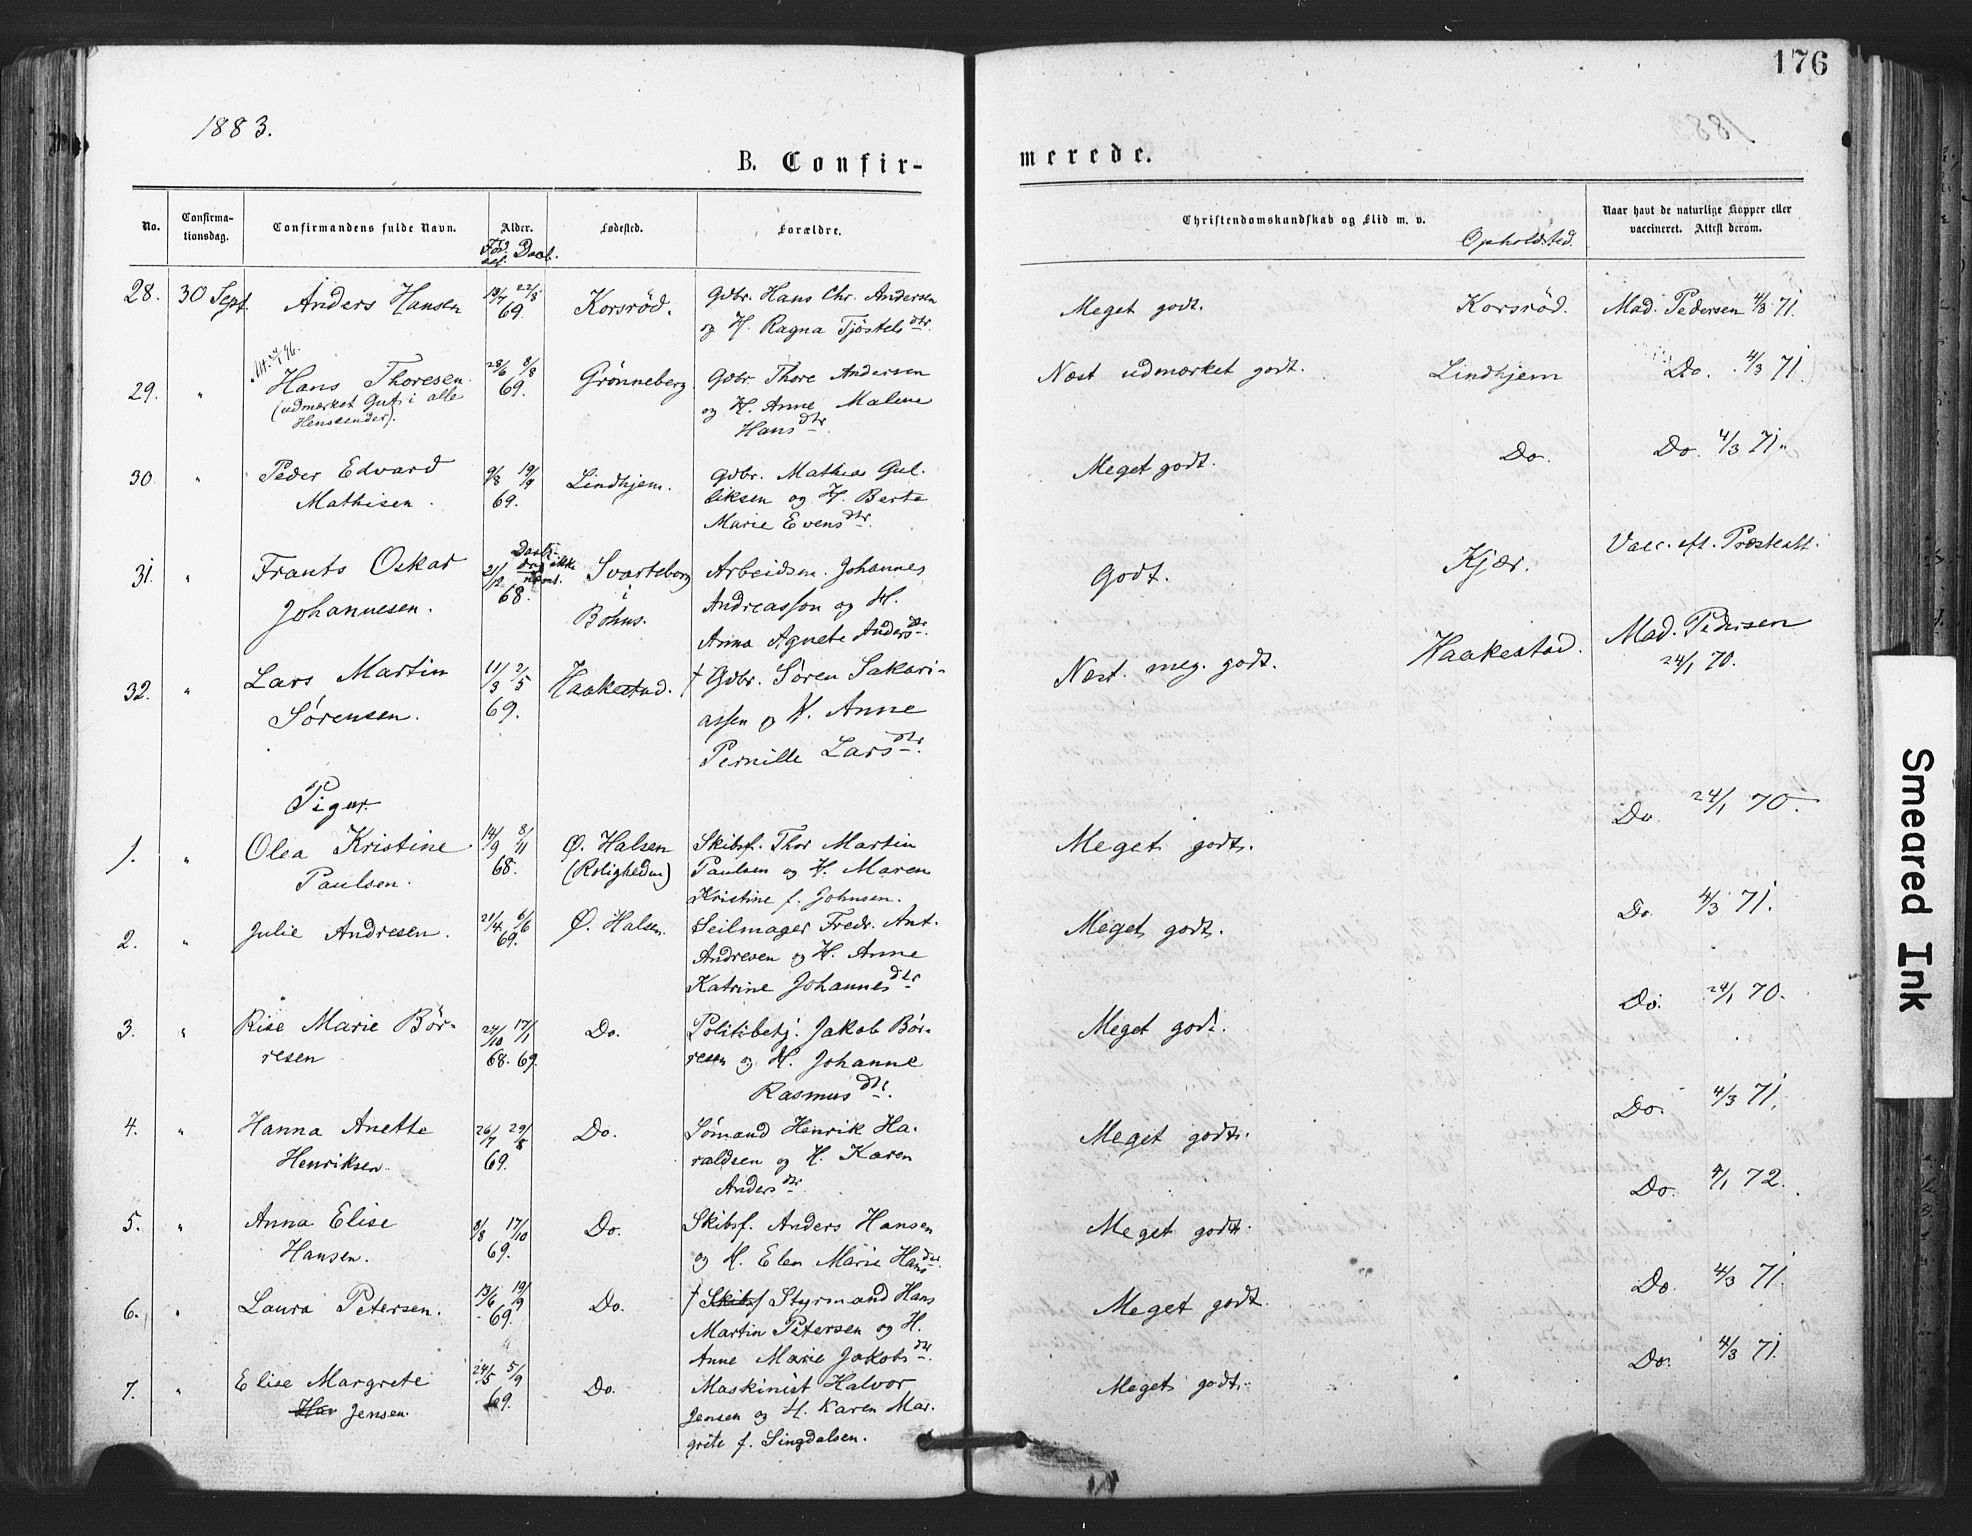 176
1883.
B. Confir-
merede.
No.
Confirma-
tionsdag.
Confirmandens fulde Navn.
Alder.
Daab.
Fødested.
Forældre.
Christendomskundskab og Flid m. v.
Opholdsted.
Naar havt de naturlige Kopper eller
vaccineret. Attest derom.
28. 30 Sept. Anders Hansen 18/7 22/8 69. Korsröd. Gdbr. Hans Chr. Andersen
og H. Ragna Tjöstelsdtr.
Meget godt. Korsröd. Mad. Pedersen 4/3 71.
29. " Hans Thoresen 28/6 8/8 69. Grønneberg Gdbr Thore Andersen
(udmærket Gut i alle
Henseender).
og H. Anne Malene
Hansdtr.
Næst udmærket godt. Lindhjem Do. 4/3 71.
30. " Peder Edvard 9/8 19/9 69. Lindhjem. Gdbr. Mathias Gul-
Mathisen.
liksen og H. Berte
Marie Evensdtr.
Meget godt. Do. Do. 4/3 71.
31. " Frants Oskar 21/12 68. Svarteborg Arbeidsm. Johannes
Johannesen.
i
Bohus.
Andreasson og H.
Anna Agnete Andersdtr.
Godt. Kjær. Vacc. eft. Præsteatt.
32. " Lars Martin 11/3 2/5 69. Haakestad. † Gdbr. Søren Sakari-
Sørensen.
assen og H. Anne
Pernille Larsdtr.
Næst. meg. godt. Haakestad. Mad. Pedersen
24/1 70.
Piger.
1. " Olea Kristine 14/9 8/11 68. Ø. Halsen Skibsf. Thor Martin
Paulsen. (Roligheden) Paulsen og H. Maren
Kristine f. Johnsen.
Meget godt. Do. 24/1 70.
2. " Julie Andresen. 21/4 6/6 69. Ø. Halsen. Seilmager Fredr. Ant.
Andresen og H. Anne
Katrine Johannesdtr
Meget godt. Do. 4/3 71.
3. " Rise Marie Bör- 24/10 17/1 Do. Politibetj. Jakob Bör-
resen 68. 69. resen og H. Johanne
Rasmusdtr.
Meget godt. Do. 24/1 70.
4. " Hanna Anette 26/7 29/8 69. Do. Sømand Henrik Ha-
Henriksen. raldsen og H. Karen
Andersdtr.
Meget godt. Do. 4/3 71.
5. " Anna Elise 3/8 17/10 69. Do. Skibsf. Anders Hansen
Hansen. og H. Elen Marie Hansdtr.
Meget godt. Do. 4/1 72.
6. " Laura Petersen. 13/6 19/9 69. Do. † Skibsf Styrmand Hans
Martin Petersen og H.
Anne Marie Jakobsdtr.
Meget godt. Do. 4/3 71.
7. " Elise Margrete 24/5 5/9 69. Do. Maskinist Halvor
Hav Jensen. Jensen og H. Karen Mar-
grete f. Singdalsen.
Meget godt. Do. 4/3 71.
Smeared Ink